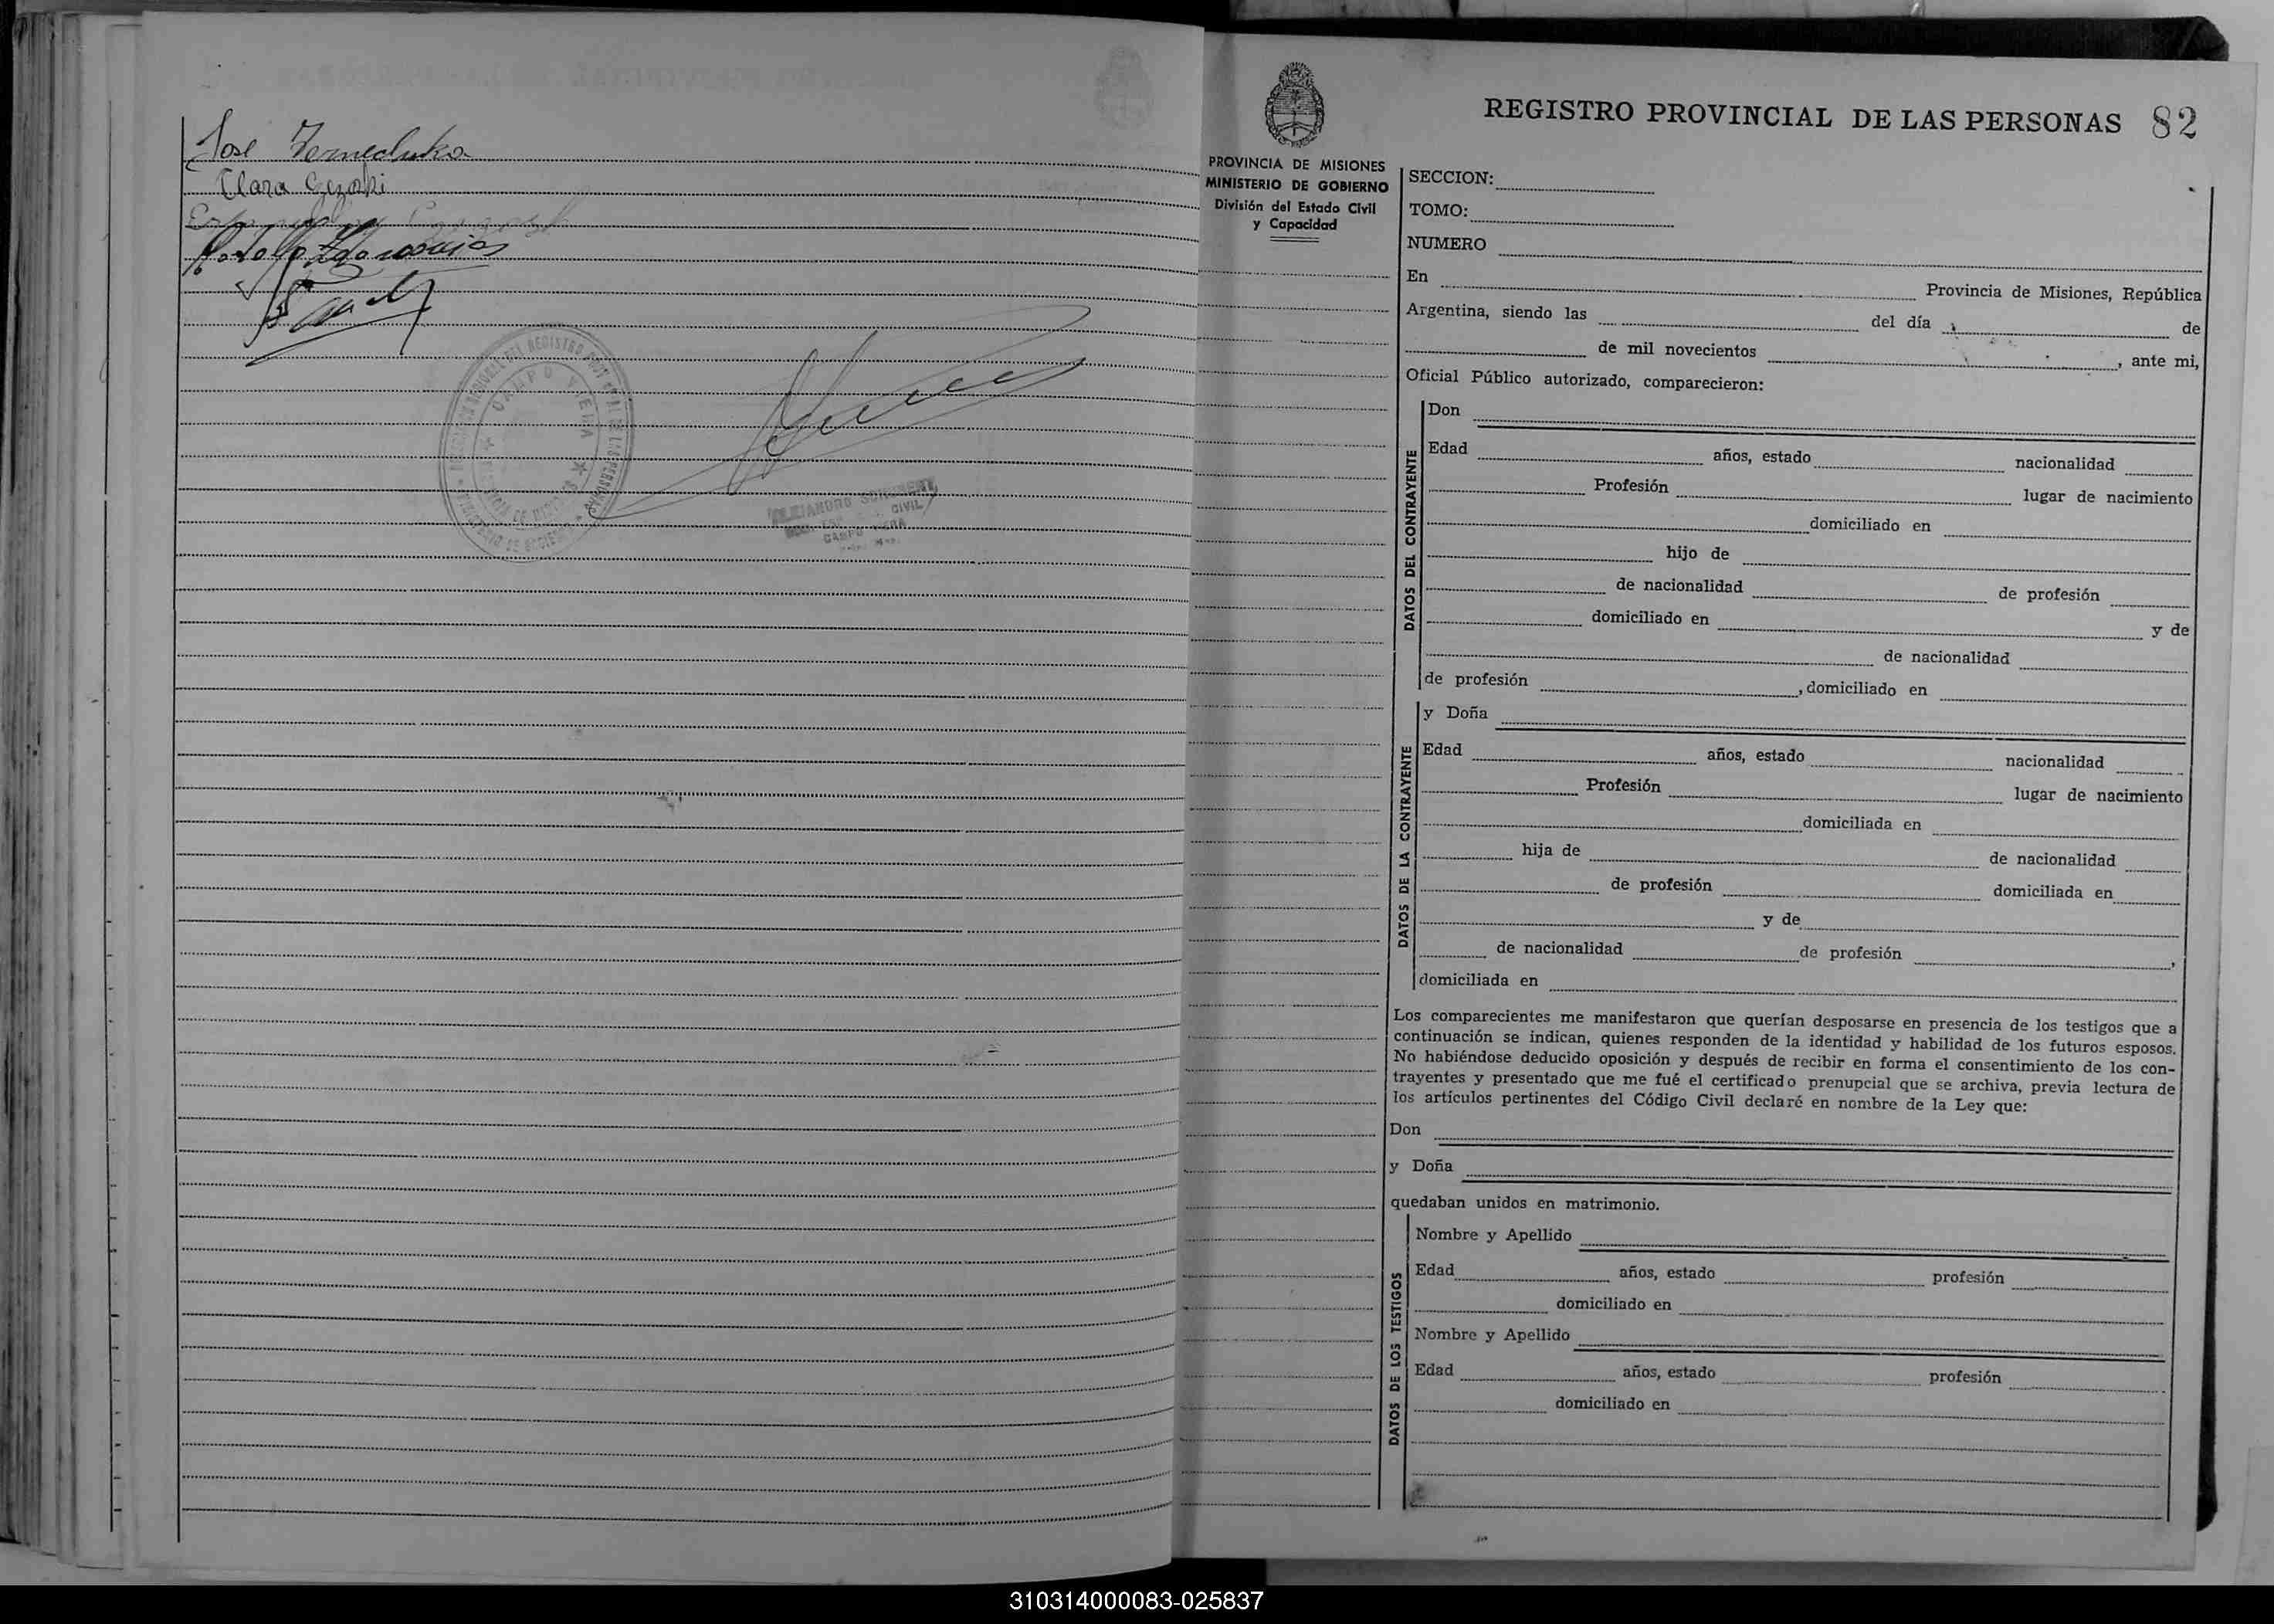 Jose
Clara
CAMPO VIERA
CIVIL
CAMPO VIERA
REGISTRO PROVINCIAL DE LAS PERSONAS 82
PROVINCIA DE MISIONES
MINISTERIO DE GOBIERNO
División del Estado Civil
y Capacidad
SECCION:
TOMO:
NUMERO
En Provincia de Misiones, República
Argentina, siendo las del día de
de mil novecientos , ante mi,
Oficial Público autorizado, comparecieron:
DATOS DEL CONTRAYENTE
Don
Edad años, estado nacionalidad
Profesión lugar de nacimiento
domiciliado en
hijo de
de nacionalidad de profesión
domiciliado en y de
de nacionalidad
de profesión , domiciliado en
DATOS DE LA CONTRAYENTE
y Doña
Edad años, estado nacionalidad
Profesión lugar de nacimiento
domiciliada en
hija de de nacionalidad
de profesión domiciliada en
y de
de nacionalidad de profesión ,
domiciliada en
Los comparecientes me manifestaron que querían desposarse en presencia de los testigos que a
continuación se indican, quienes responden de la identidad y habilidad de los futuros esposos.
No habiéndose deducido oposición y después de recibir en forma el consentimiento de los con-
trayentes y presentado que me fué el certificado prenupcial que se archiva, previa lectura de
los artículos pertinentes del Código Civil declaré en nombre de la Ley que:
Don
y Doña
quedaban unidos en matrimonio.
DATOS DE LOS TESTIGOS
Nombre y Apellido
Edad años, estado profesión
domiciliado en
Nombre y Apellido
Edad años, estado profesión
domiciliado en
310314000083-025837